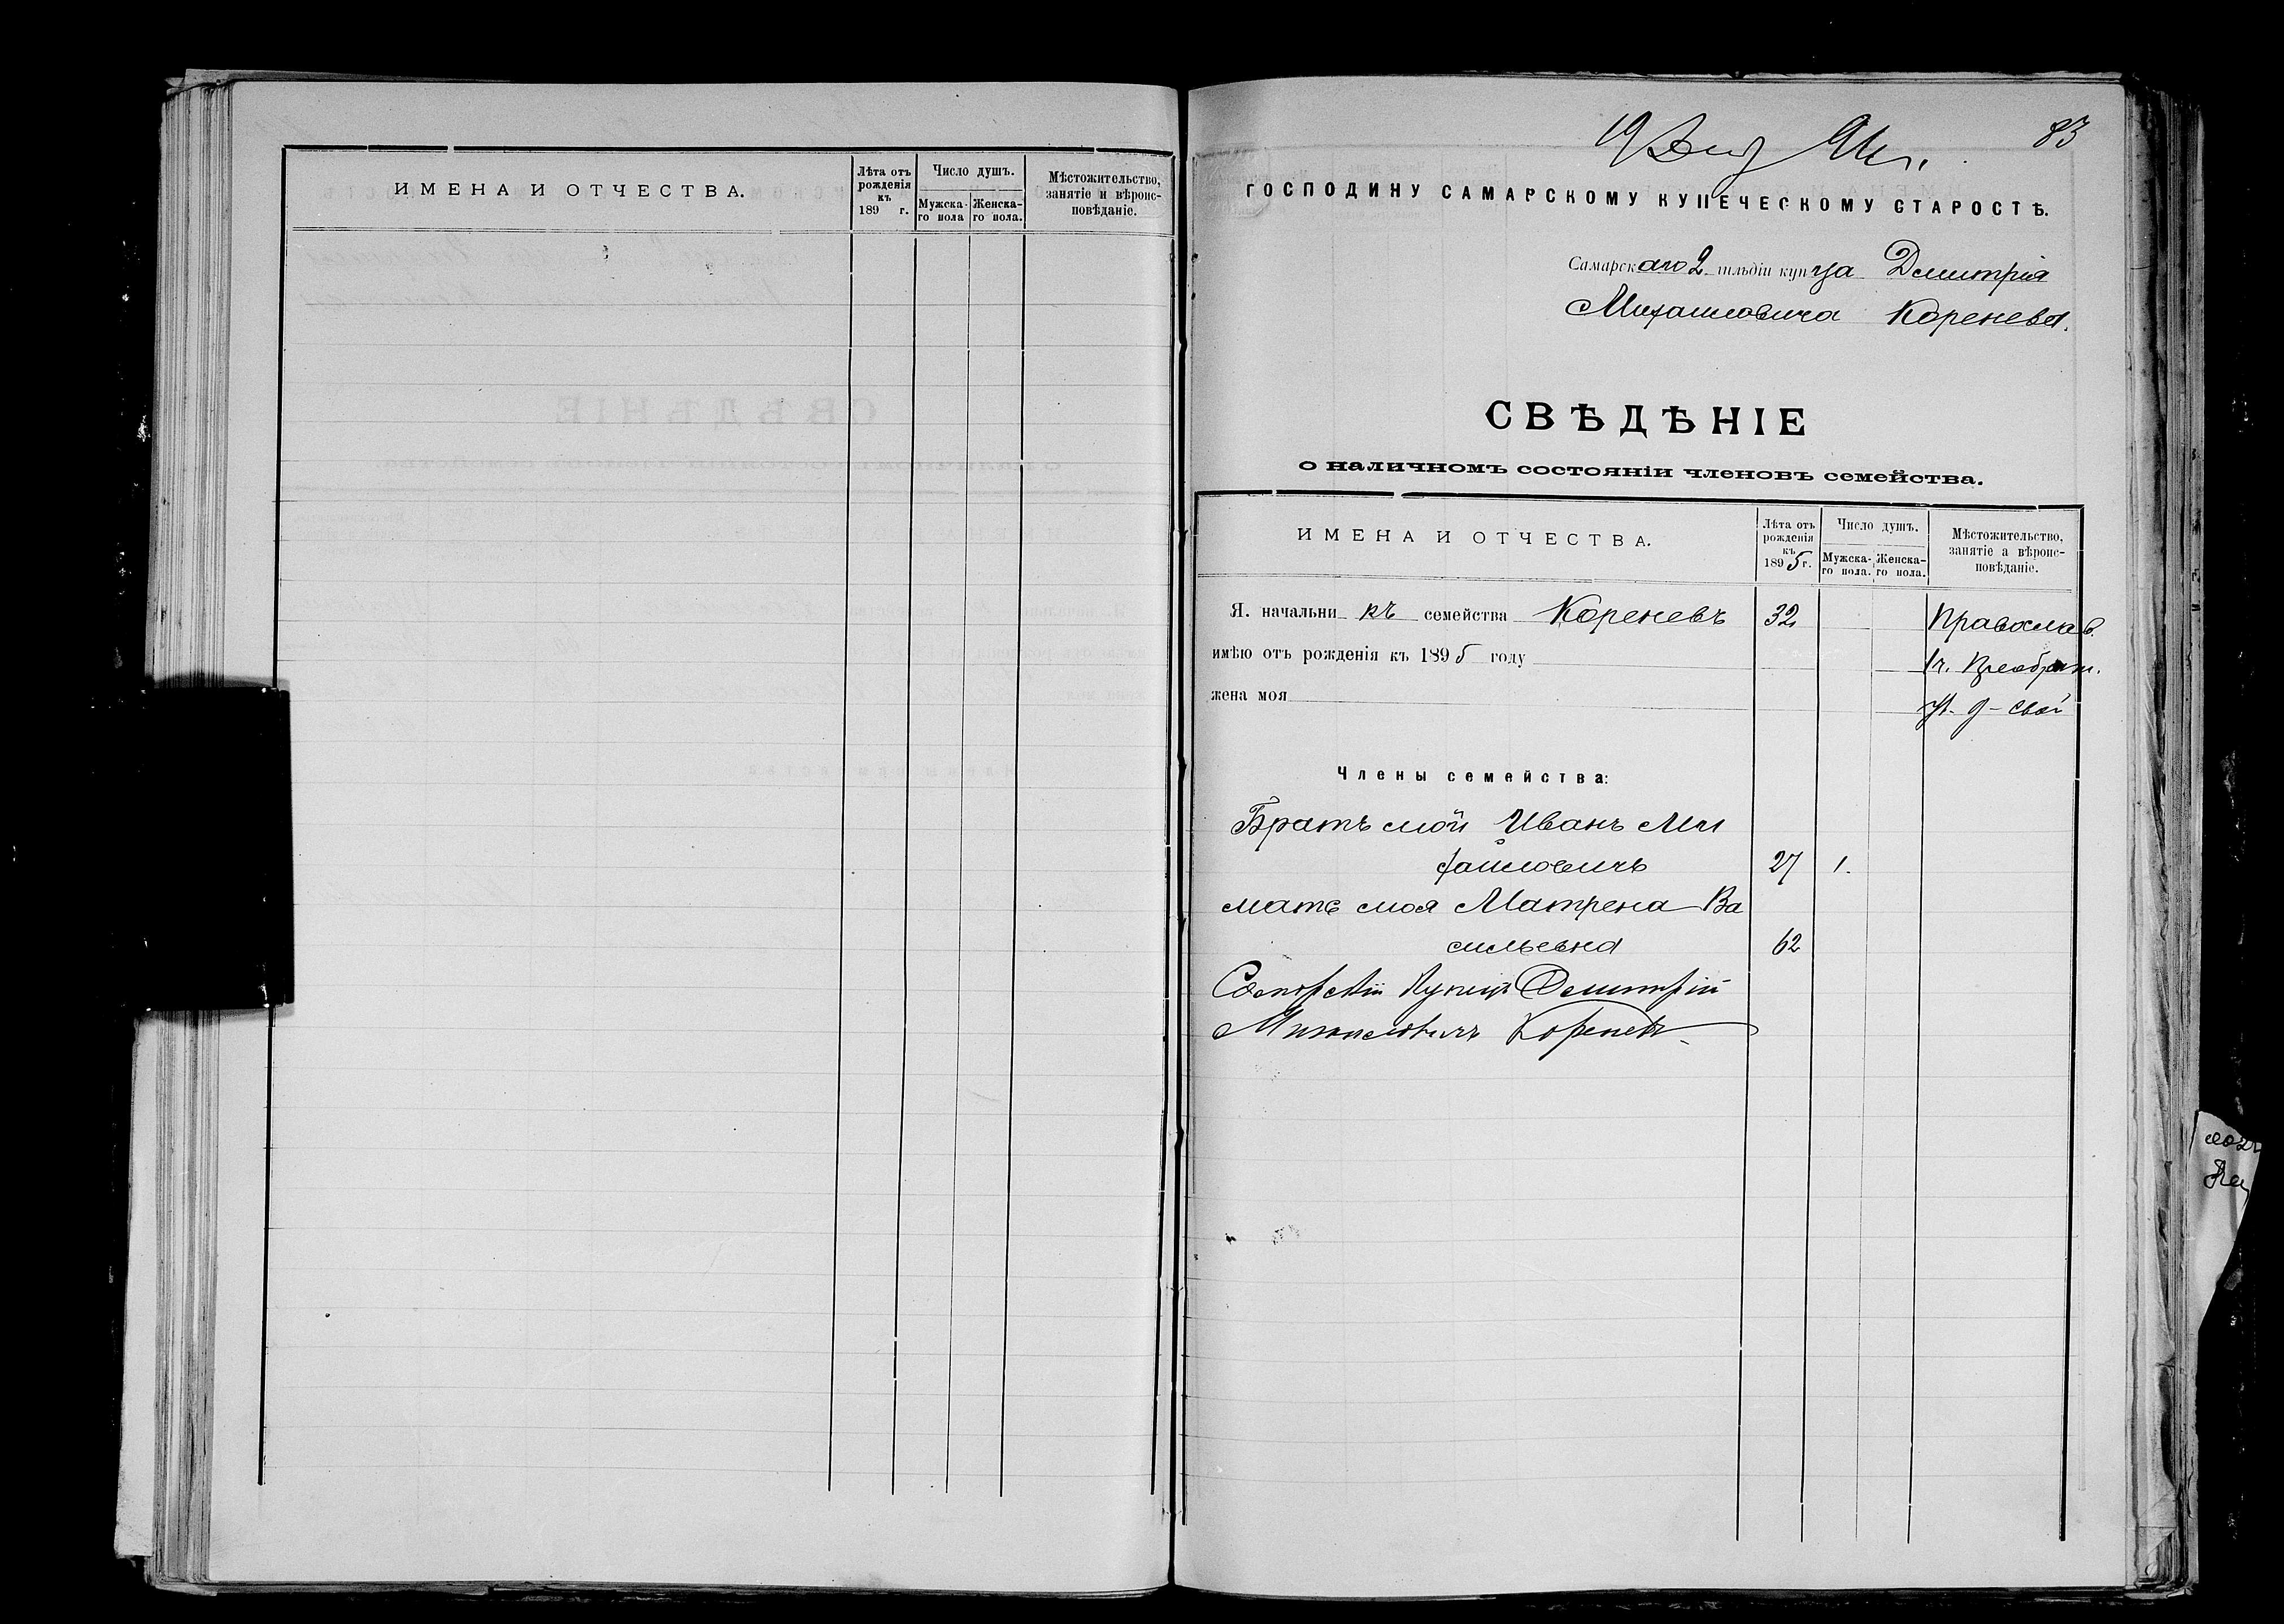 ИМЕНА И ОТЧЕСТВА.
Лѣта отъ рожденія къ 189 г.
Число душъ.
Мужска-го пола
Женска-го пола.
Мѣстожительство, занятіе и вѣроис-повѣданіе.
83
ГОСПОДИНУ САМАРСКОМУ КУПЕЧЕСКОМУ СТАРОСТѢ.
Самарскаго 2 гильдіи купца Дмитрія
Михайловича Коренева.
СВѢДѢНІЕ
о наличномъ состояніи членовъ семейства.
ИМЕНА И ОТЧЕСТВА.
Лѣта отъ рожденія къ 1895 г.
Число душъ.
Мужска-го пола.
Женска-го пола.
Мѣстожительство, занятіе а вѣроис-повѣданіе.
Я. начальникъ семейства Кореневъ 32 Православ.
имѣю отъ рожденія къ 1895 году 1 ч. Преображ.
жена моя ул. д- свой
Члены семейства:
Братъ мой Иванъ Ми
хайловичъ 27 1.
мать моя Матрена Ва
сильевна 62
Самарскій Купецъ Дмитрій
Михаиловичъ Кореневъ